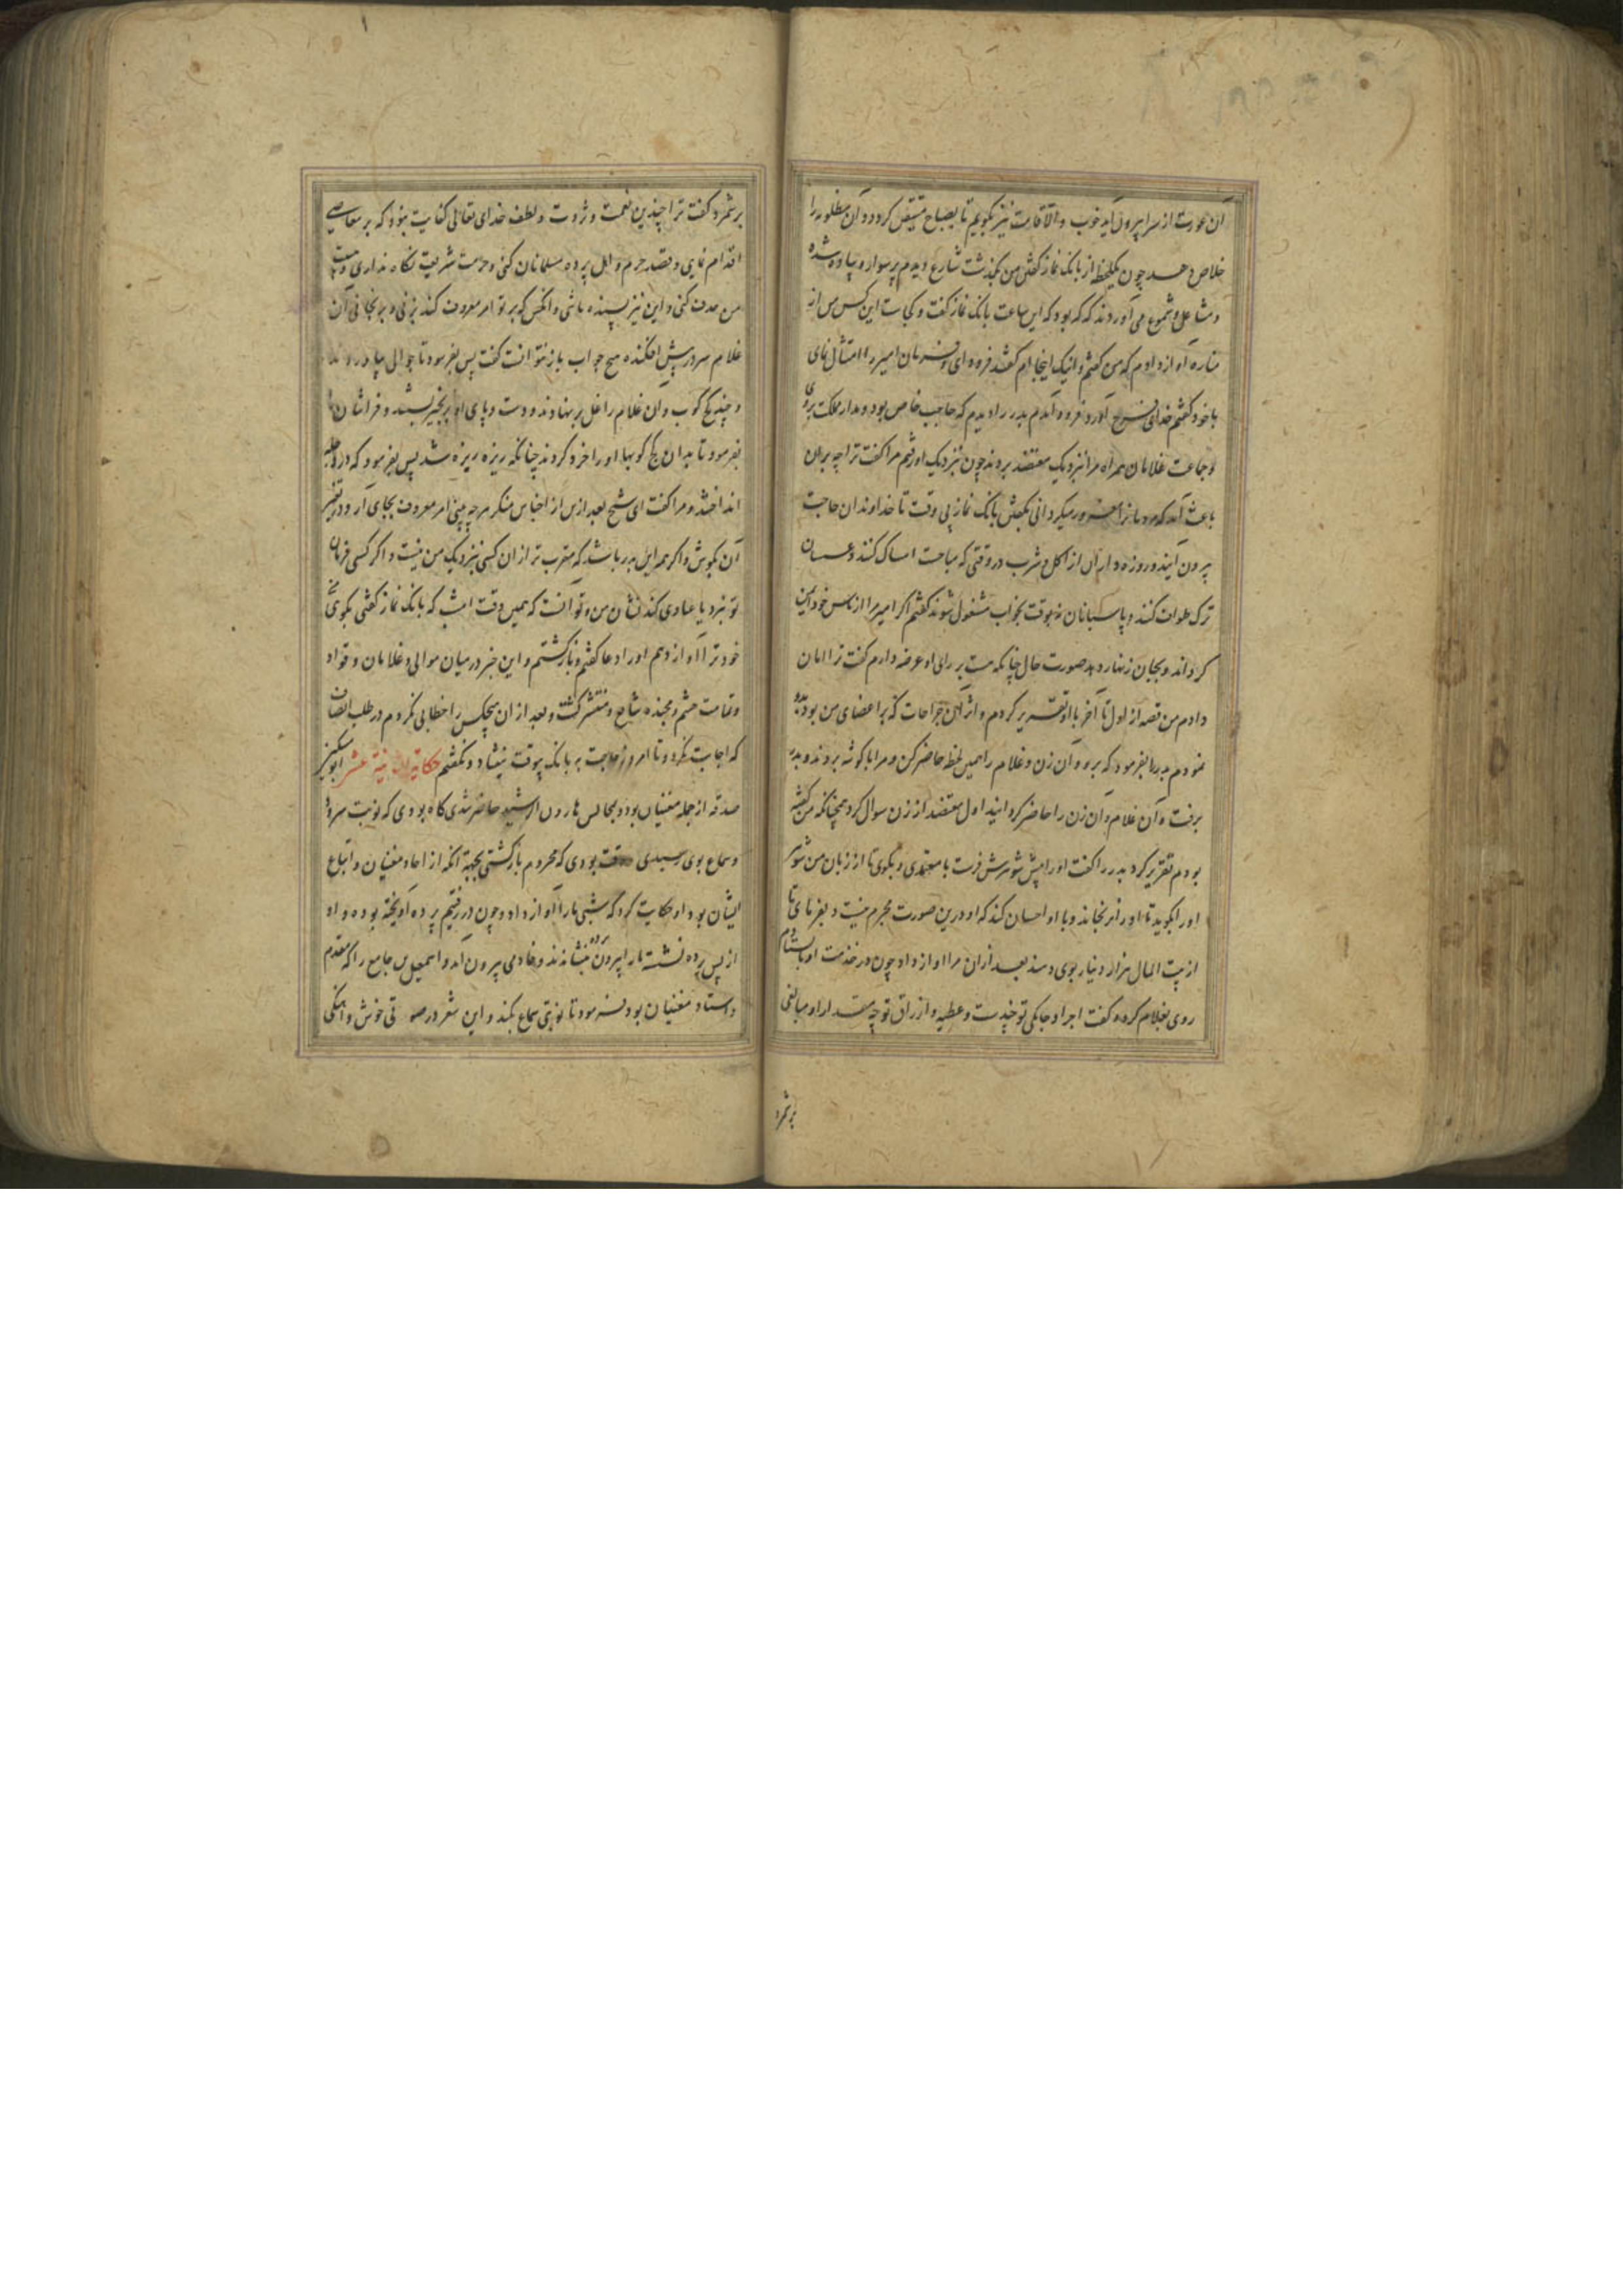 آن عورت از سرا بیرون آید خوب و الا قامت نیز بگویم تا بصباح متیقن گردد و آن مظلومه را
خلاص دهد چون یکلحظه از بانک نماز گفتن من بگذشت شارع دیدم پر سوار و پیاده شده
و مشاعل و شموع می‌آوردند که که بود که این ساعت بانک نماز گفت و کجاست این کس من از
مناره آواز دادم که من گفتم و اینک اینجا ام گفتند فرود آی و فرمان امیر را امتثال نمای
با خود گفتم خدای فرج آورد فرود آمدم بدر را دیدم که حاجب خاص بود و مدار مملکت بروی
و جماعت غلامان همراه مرا بنزدیک معتضد بردند چون بنزدیک او رفتم مرا گفت ترا چه بر آن
باعث آمد که مردمانرا مغرور میکردانی بگفتن بانک نماز بی وقت تا خداوندان حاجت
بیرون آیند و روزه داران از اکل و شرب در وقتی که مباحست امساک کنند و عسسان
ترک طواف کنند و پاسبانان نه بوقت بخواب مشغول شوند گفتم اگر امیر مرا از باس خود ایمن
کرداند و بجان زنهار دهد صورت حال چنانکه هست بر رای او عرضه دارم گفت ترا امان
دادم من قصه از اول تا آخر با او تقریر کردم و اثر آن جراحات که بر اعضای من بود بدو
نمودم بدر را بفرمود که برو و آن زن و غلام را همین لحظه حاضر کن و مرا با گوشه بردند و بدر
برفت و آن غلام و آن زن را حاضر گردانید اول معتضد از زن سوال کرد همچنانکه من گفته
بودم تقریر کرد بدر را گفت او را پیش شوهرش فرست با معتمدی و بگوی تا از زبان من شوهر
او را بگوید تا او را نرنجاند و با او احسان کند که او درین صورت مجرم نیست و بفرمای تا
از بیت المال هزار دینار بوی دهند بعد از آن مرا آواز داد چون در خدمت او باستادم
روی بغلام کرد و گفت اجرا و جامگی تو چندست و عطیه و ارزاق تو چه مقدار او مبالغی
برشمرد
برشمرد گفت ترا چندین نعمت و ثروت و لطف خدای تعالی کفایت نبود که بر معاصی
اقدام نمایی و قصد حرم و اهل پرده مسلمانان کنی و حرمت شریعت نگاه نداری و هیبت
من هدف کنی و این نیز بسنده نباشی و انکس که بر تو امر معروف کند بزنی و برنجانی آن
غلام سر در پیش افکنده هیچ جواب باز نتوانست گفت پس بفرمود تا جوالی بیاوردند
و چند گچ کوب و آن غلام را غل بر نهادند و دست و پای او بزنجیر ببستند و فراشان را
بفرمود تا بدان گچ کوبها او را خرد کردند چنانکه ریزه ریزه شد پس بفرمود که در دجله
انداختند و مرا گفت ای شیخ بعد ازین از اجناس منکر هرچه بینی امر معروف بجای آر و در تغییر
آن بکوش و اگر همه این بدر باشد که مقرب تر از ان کسی بنزدیک من نیست و اگر کسی فرمان
تو نبرد یا عنادی کند نشان من و تو آنست که همین وقت امشب که بانک نماز گفتی بگوی تا
خود ترا آواز دهم او را دعا گفتم و بازگشتم و این خبر در میان موالی و غلامان و قواد
و تمامت حشم و بجنده شایع و منتشر گشت و بعد از ان هیچکس را خطابی نکردم در طلب انصاف
که اجابت نکرد و تا امروز حاجت به بانک بیوقت نیفتاد و نگفتم حکایة الثانیة عشر ابو سکیر
صدقه از جمله مغنیان بود و بمجالس هارون الرشید حاضر شدی گاه بودی که نوبت سرود
و سماع بوی رسیدی وقت بودی که محروم بازگشتی بجهة آنکه از احاد مغنیان و اتباع
ایشان بود او حکایت کرد که شبی ما را آواز داد و چون در رفتیم پرده آویخته بود و او
از پس پرده نشسته ما را بیرون پرده بنشاندند و خادمی بیرون آمد و اسمعیل بن جامع را که مقدم
و استاد مغنیان بود فرمود تا نوبتی سماع بکند و این شعر در صوتی خوش و آهنگی